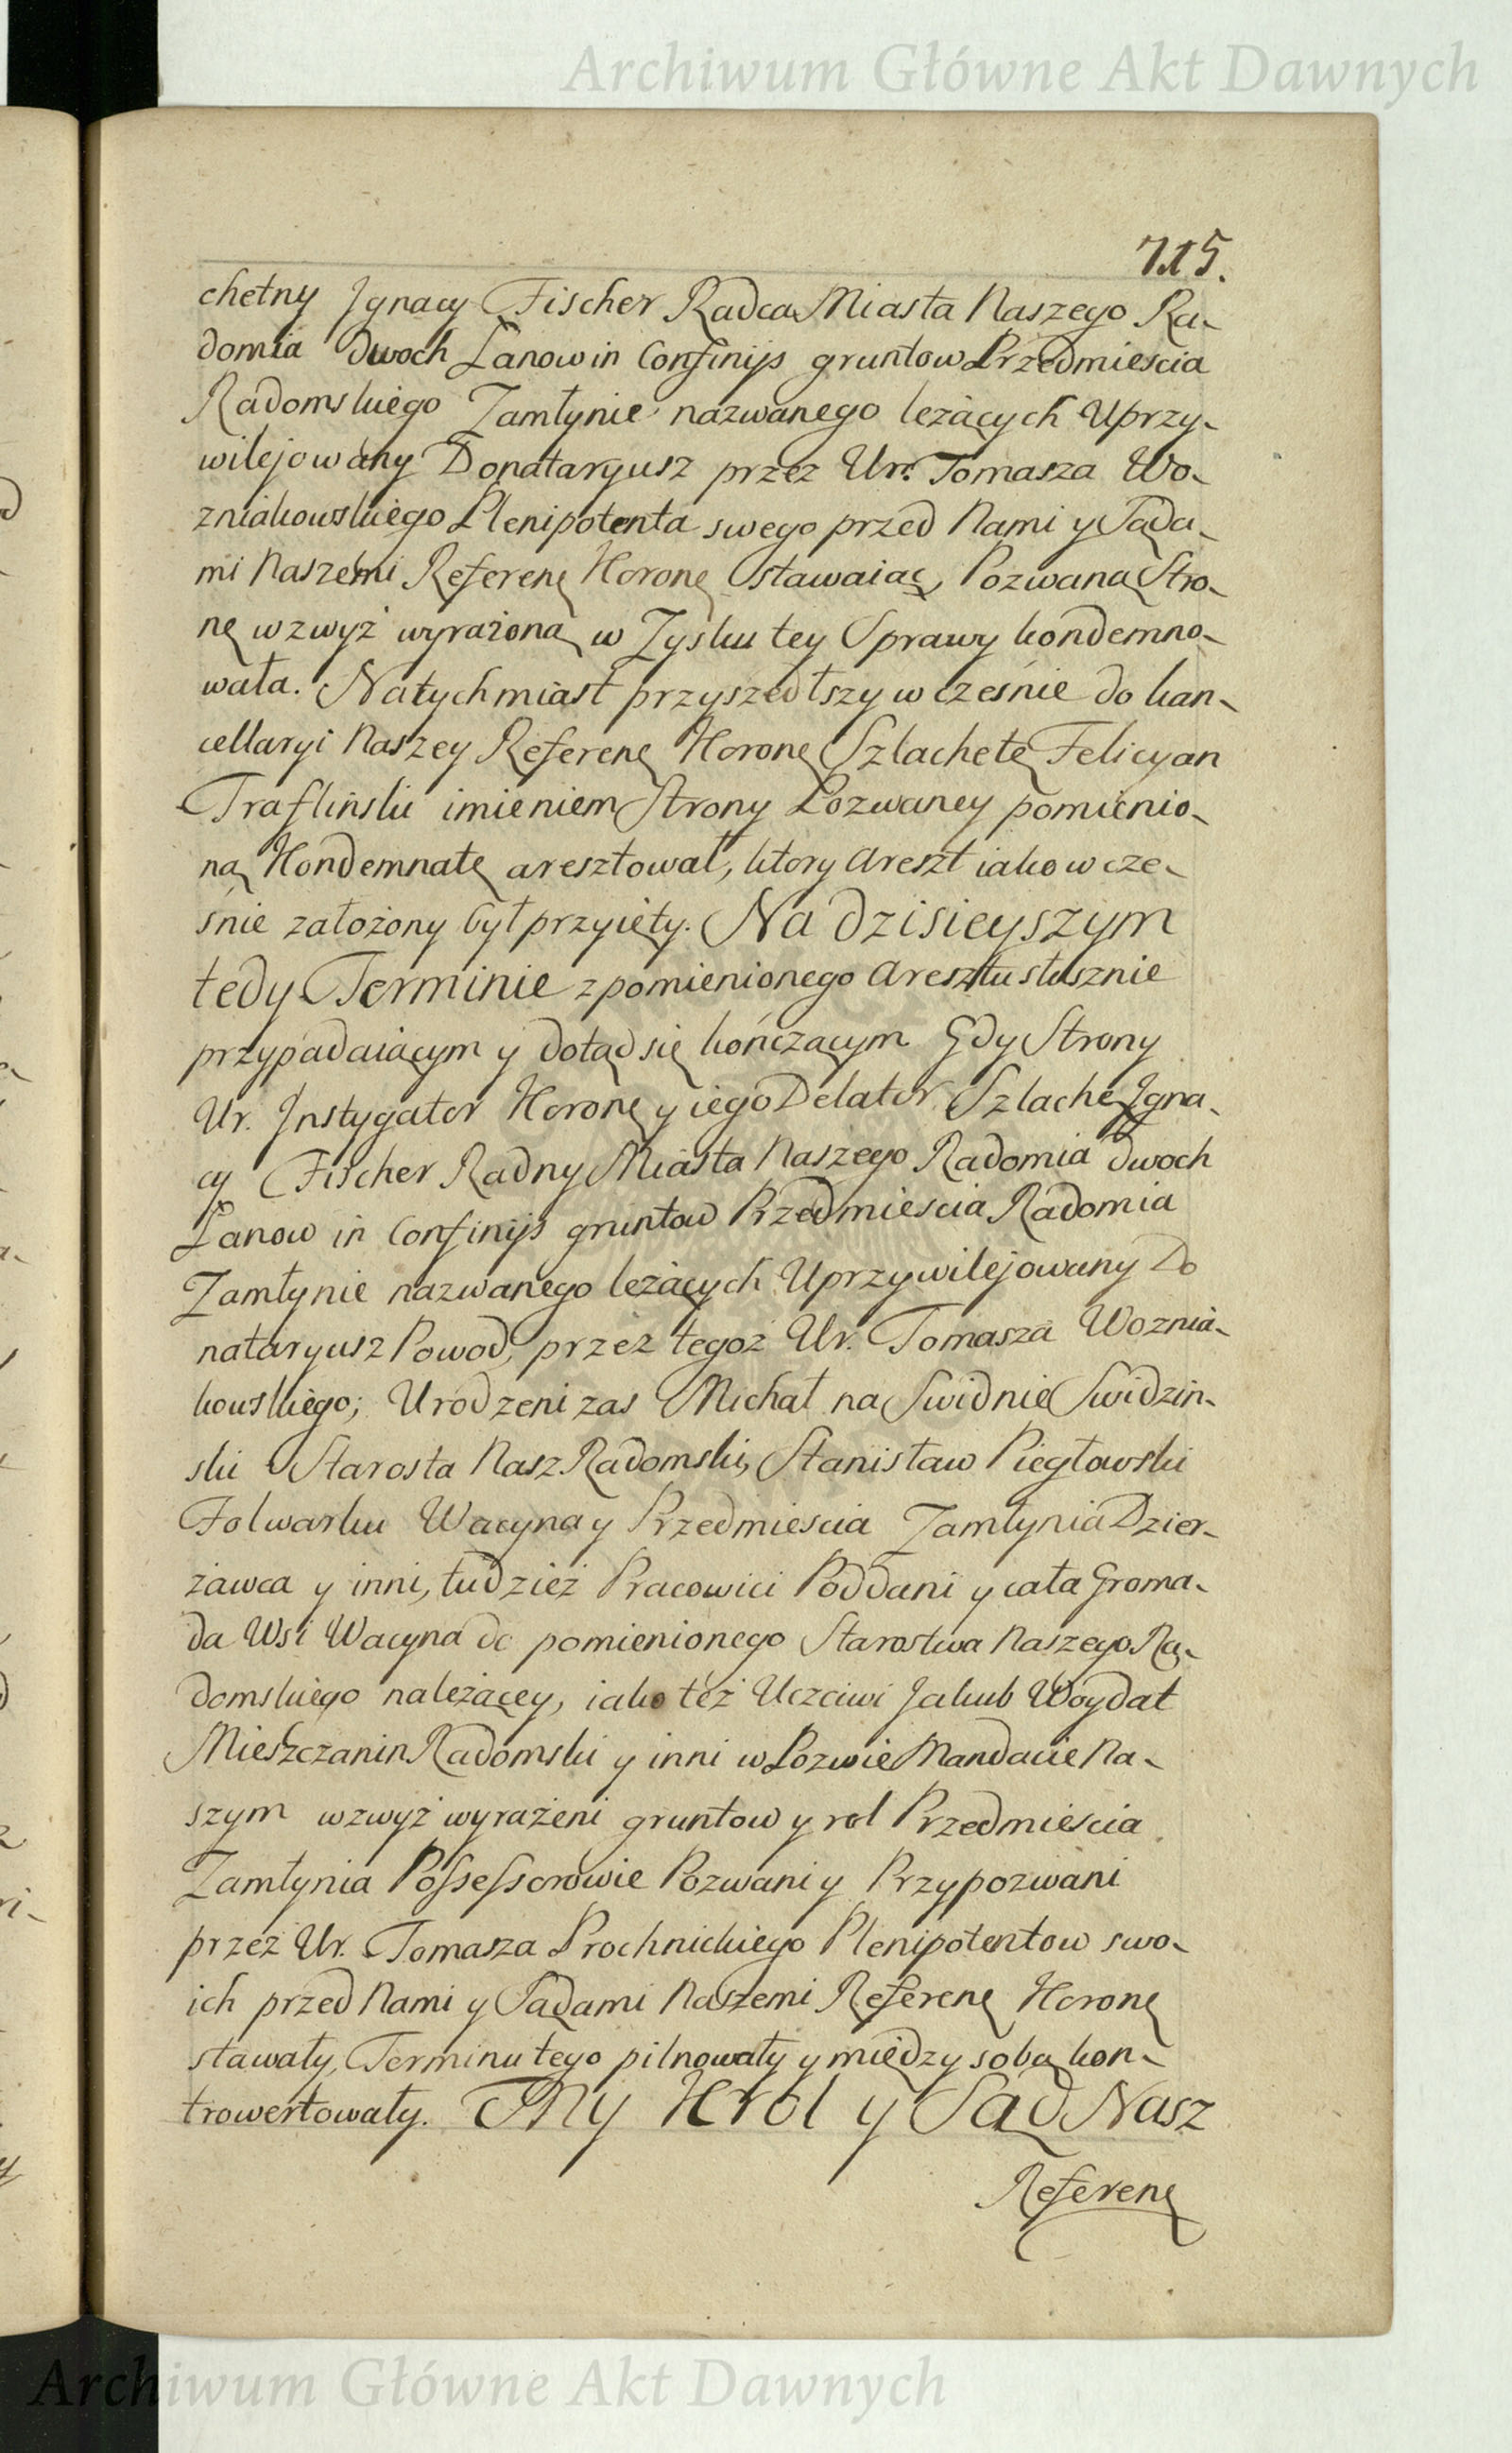 Archiwum Główne Akt Dawnych
715.
chetny Jgnacy Fischer Radca Miasta Naszego Ra-
domia dwoch Łanow in Confinijs gruntow Przedmiescia
Radomskiego Zamłynie nazwanego leżących Uprzy-
wilejowany Donataryusz przez Ur. Tomasza Wo-
zniakowskiego Plenipotenta swego przed Nami y Sąda-
mi Naszemi Referenę Koronę stawaiąc, Pozwaną Stro-
nę wzwyż wyrażoną w Zysku tey Sprawy kondemno-
wała. Natychmiast przyszedłszy wcześnie do kan-
cellaryi Naszey Referenę Koronę Szlachetę Felicyan
Trafliński imieniem Strony Pozwaney pomienio-
ną Kondemnatę aresztował, ktory Areszt iako wcze-
śnie założony był przyięty. Na dzisieyszym
tedy Terminie z pomienionego Aresztu słusznie
przypadaiącym y dotąd się kończącym Gdy Strony
Ur. Jnstygator Koronę y iego Delator Szlachę Jgna-
cy Fischer Radny Miasta Naszego Radomia dwoch
Łanow in Confinijs gruntow Przedmiescia Radomia
Zamłynie nazwanego leżących Uprzywilejowany Do
nataryusz Powod, przez tegoż Ur. Tomasza Woznia-
kowskiego; Urodzeni zas Michał na Swidnie Swidzin-
ski Starosta Nasz Radomski, Stanisław Piegłowski
Folwarku Wacyna y Przedmiescia Zamłynia Dzier-
żawca y inni, tudzież Pracowici Poddani y cała Groma-
da Wsi Wacyna do pomienionego Starostwa Naszego Ra-
domskiego należącey, iako też Uczciwi Jakub Woydat
Mieszczanin Radomski y inni w Pozwie Mandacie Na-
szym wzwyż wyrażeni gruntow y rol Przedmieścia
Zamłynia Possessorowie Pozwani y Przypozwani
przez Ur. Tomasza Prochnickiego Plenipotentow swo-
ich przed Nami y Sądami Naszemi Referenę Koronę
stawały, Terminu tego pilnowały y między sobą kon-
trowertowały. My Krol y Sąd Nasz
Referenę
Archiwum Główne Akt Dawnych